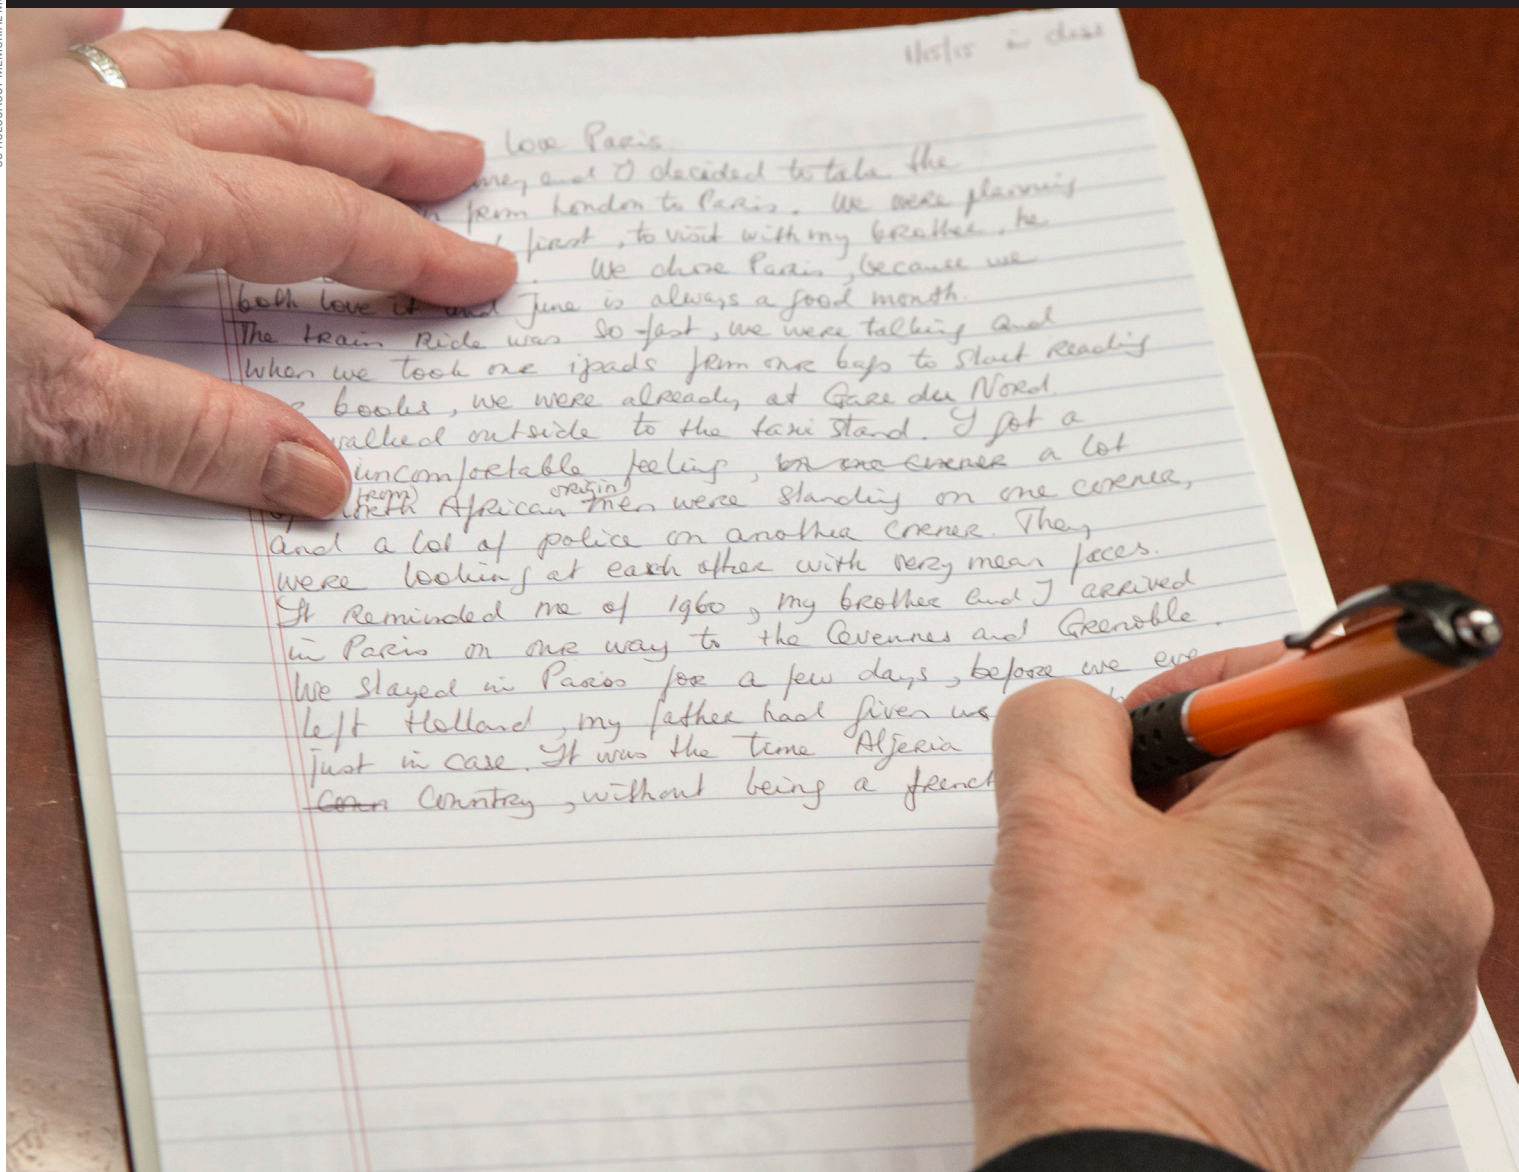 1/15/15 in class
love Paris
and I decided to take the
from London to Paris. We were planning
first, to visit with my brother, he
We chose Paris, because we
both love it and June is always a good month.
The train Ride was so fast, we were talking and
when we took our ipads from our bags to start reading
books, we were already at Gare du Nord.
walked outside to the taxi stand. I got a
uncomfortable feeling, on one corner a lot
(from) origin)
of North African men were standing on one corner,
and a lot of police on another corner. They
were looking at each other with very mean faces.
It Reminded me of 1960, my brother and I arrived
in Paris on our way to the Cevennes and Grenoble.
We stayed in Paris for a few days, before we eve
left Holland, my father had given us
just in case. It was the time Aljeria
Coun Country, without being a french